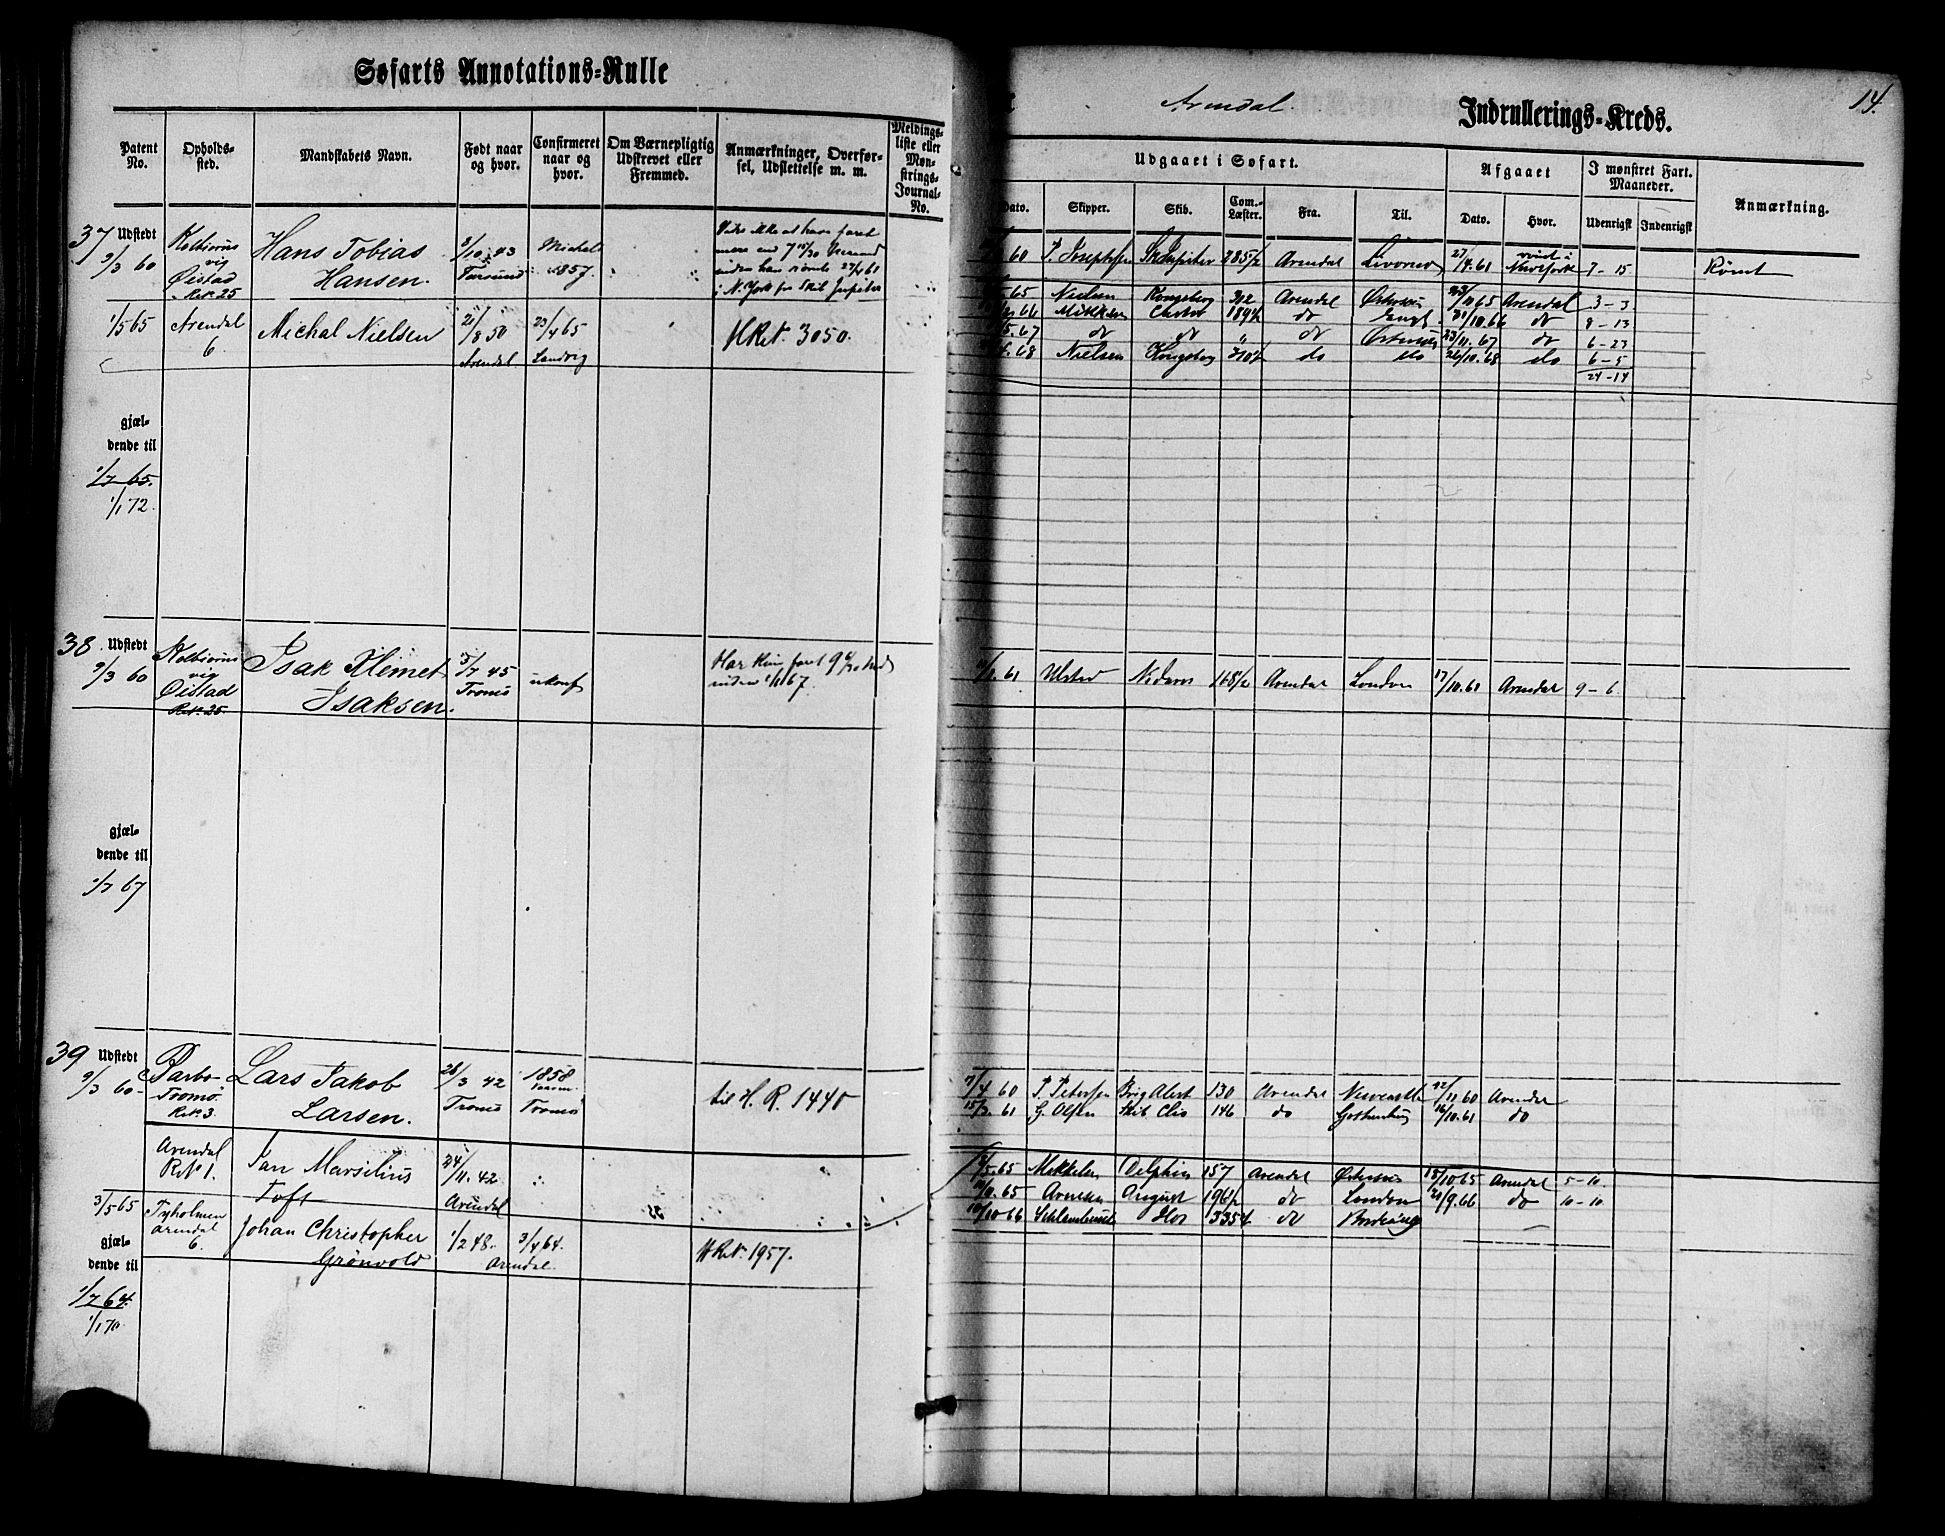 Søfarts Annotations-Rulle
Patent No.
Opholds-sted.
Mandskabets Navn.
Født naar og hvor.
Confirmeret naar og hvor.
Om Værnepligtig Udskrevet eller Fremmed.
Anmærkninger, Overførsel, Udslettelse m. m.
Meldings-liste eller Møn-strings-Journal-No.
37 Udstedt
9/3 60
Øistad
R.N. 25
Hans Tobias
Hansen.
9/10 43
Michal
1857.
1/5 65
Arendal
6.
Michal Nielsen
21/8 50
Arendal
23/4 65
Landvig
HRN. 3050.
gjæl-
dende til
1/7 65.
1/1 72.
38 Udstedt
9/3 60
vig
Øistad
R.N. 25
Isak Klemet
Isaksen.
5/7 45
Tromø
ukonf
Har kun faret 9
inden 1/1 67.
gjæl-
dende til
1/7 67
39 Udstedt
9/3 60
Barbo
Tromø
R.N. 3.
Lars Jakob
Larsen.
26/3 42
Tromø
1858
Tromø
til H. R. 1440
Arendal
R.N. 1.
Jan Marsilius
Toft
24/11. 42
Arendal
3/5 65
Tyholmen
Arendal
6.
Johan Christopher
Grönvold
1/2 48.
3/4 64.
Arendal.
HRN. 1957.
gjæl-
dende til
1/7 64.
1/1 70.
Arendal.
Indrullerings-Kreds.
14.
Udgaaet i Søfart.
Afgaaet
I mønstret Fart. Maaneder.
Anmærkning.
Dato.
Skipper.
Skib.
Com.-Læster.
Fra.
Til.
Dato.
Hvor.
Udenrigst
Indenrigst
60 P. Josephsen Jupiter 285½ Arendal Livorno 27/4. 61 rømt i Newyork 7 - 15 Rømt
65 Nielsen Kongsberg 302 Arendal Østersøen 23/10 65 Arendal 3 - 3
66 Mikkelsen Castor 189½ do Engl. 31/10. 66 do 8 - 13
5. 67 do do " do Østersøen 23/11. 67 do 6 - 23
68 Nielsen Kongsberg 310½ do do 26/10. 68 do 6 - 5
24 - 14
61 Ulsted Nidaros 165½ Arendal London 17/10. 61 Arendal 9 - 6
7/4 60 P. Petersen Brig Alert 130 Arendal Newcastle 12/11 60 Arendal
15/3. 61 G. Olsen Skib Clio 146 do Gothenburg 16/10. 61 do
5. 65 Mikkelsen Delphin 157 Arendal Østersøen 15/10 65 Arendal 5 - 10
65 Arentsen August 196½ do London 21/9. 66 do 10 - 10
10/10 66 335½ do Bordeaux —